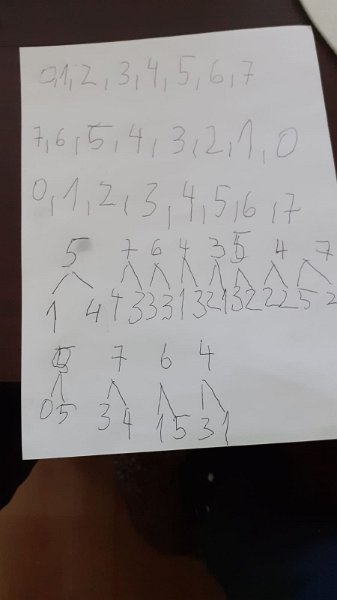 0,1,2,3,4,5,6,7
7,6,5,4,3,2,1,0
0,1,2,3,4,5,6,7
5 7 6 4 3 5 4 7
1 4 4 3 3 3 1 3 2 1 3 2 2 2 5 2
5 7 6 4
0 5 3 4 1 5 3 1